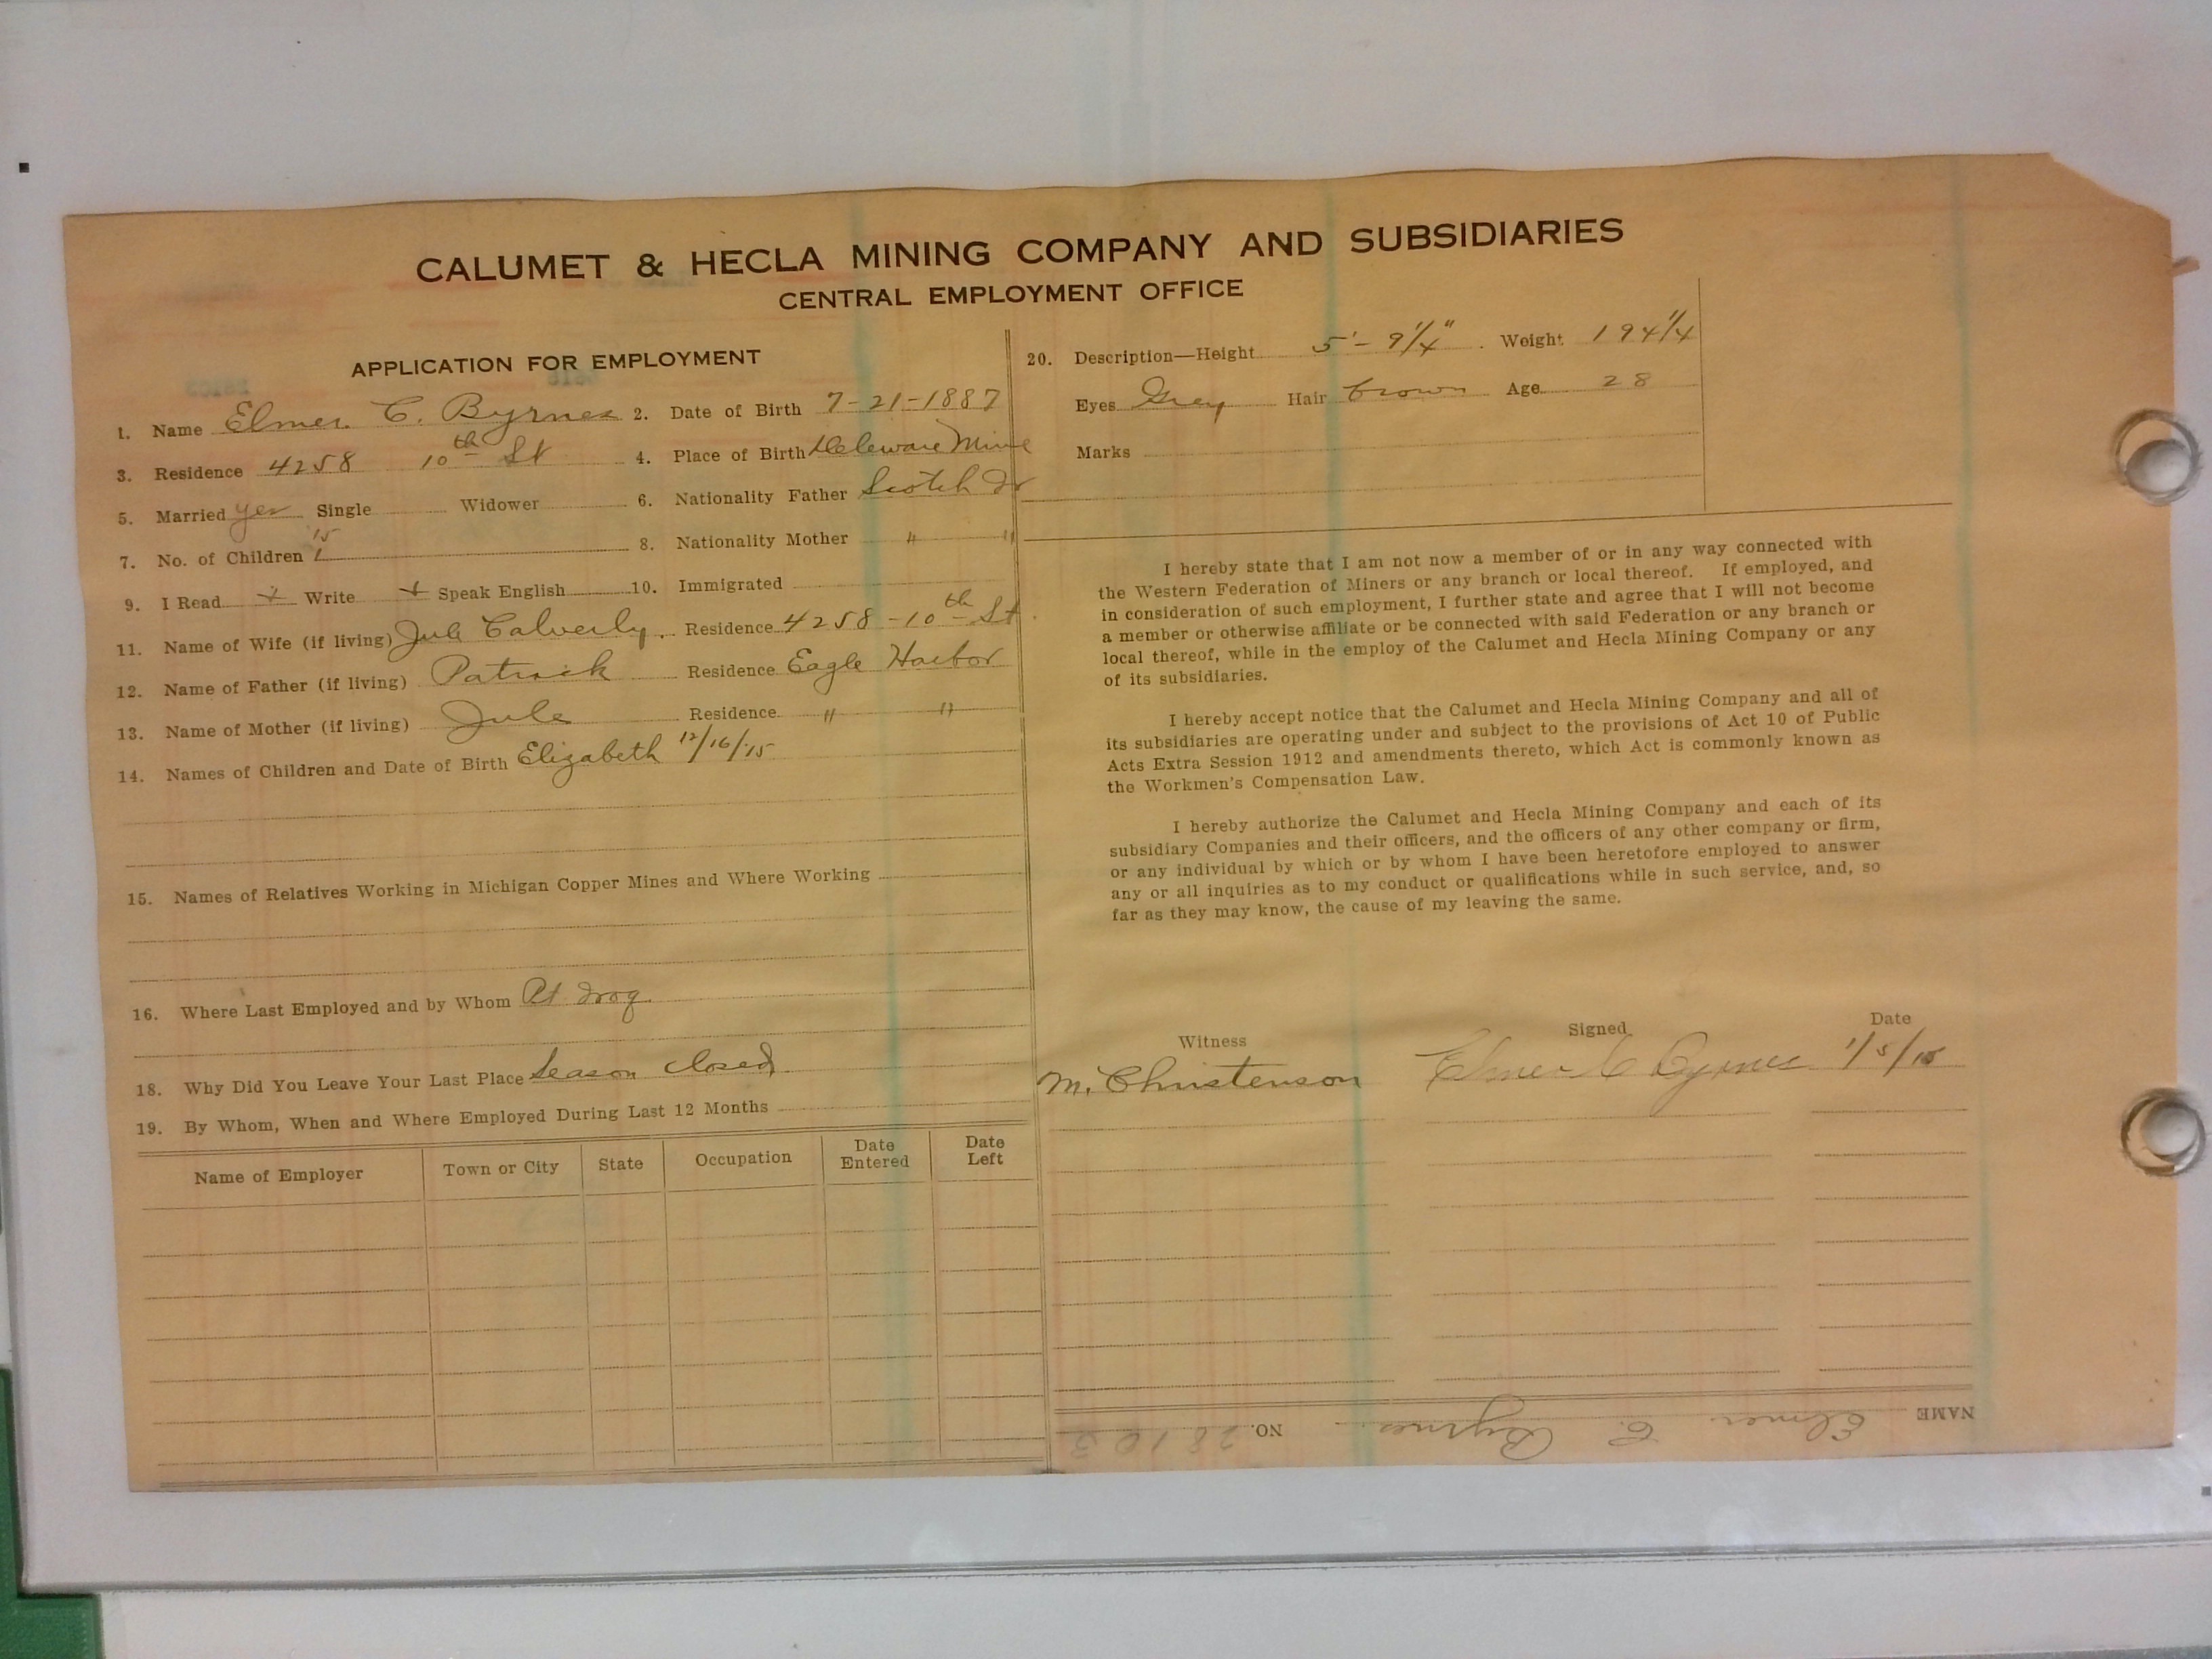 CALUMET & HECLA MINING COMPANY AND SUBSIDIARIES
CENTRAL EMPLOYMENT OFFICE
APPLICATION FOR EMPLOYMENT
1. Name Elmer C. Byrnes 2. Date of Birth 7-21-1887
3. Residence 4258 10th St 4. Place of Birth Deleware Mine
5. Married yes Single Widower 6. Nationality Father Scotch Ir
7. No. of Children 1 8. Nationality Mother " "
9. I Read + Write + Speak English 10. Immigrated
11. Name of Wife (if living) Calverly. Residence 4258-10th St
12. Name of Father (if living) Patrick Residence Eagle Harbor
13. Name of Mother (if living) Residence " "
14. Names of Children and Date of Birth Elizabeth 12/16/15
15. Names of Relatives Working in Michigan Copper Mines and Where Working
16. Where Last Employed and by Whom At
18. Why Did You Leave Your Last Place Season closed
19. By Whom, When and Where Employed During Last 12 Months
Name of Employer Town or City State Occupation Date Entered Date Left
20. Description—Height 5'-9 1/4" Weight 194 1/4
Eyes Grey Hair brown Age 28
Marks
I hereby state that I am not now a member of or in any way connected with
the Western Federation of Miners or any branch or local thereof. If employed, and
in consideration of such employment, I further state and agree that I will not become
a member or otherwise affiliate or be connected with said Federation or any branch or
local thereof, while in the employ of the Calumet and Hecla Mining Company or any
of its subsidiaries.
I hereby accept notice that the Calumet and Hecla Mining Company and all of
its subsidiaries are operating under and subject to the provisions of Act 10 of Public
Acts Extra Session 1912 and amendments thereto, which Act is commonly known as
the Workmen's Compensation Law.
I hereby authorize the Calumet and Hecla Mining Company and each of its
subsidiary Companies and their officers, and the officers of any other company or firm,
or any individual by which or by whom I have been heretofore employed to answer
any or all inquiries as to my conduct or qualifications while in such service, and, so
far as they may know, the cause of my leaving the same.
Witness Signed Date
M. Christenson Elmer C Byrnes 1/5/
NAME Elmer C. Byrnes NO. 28103